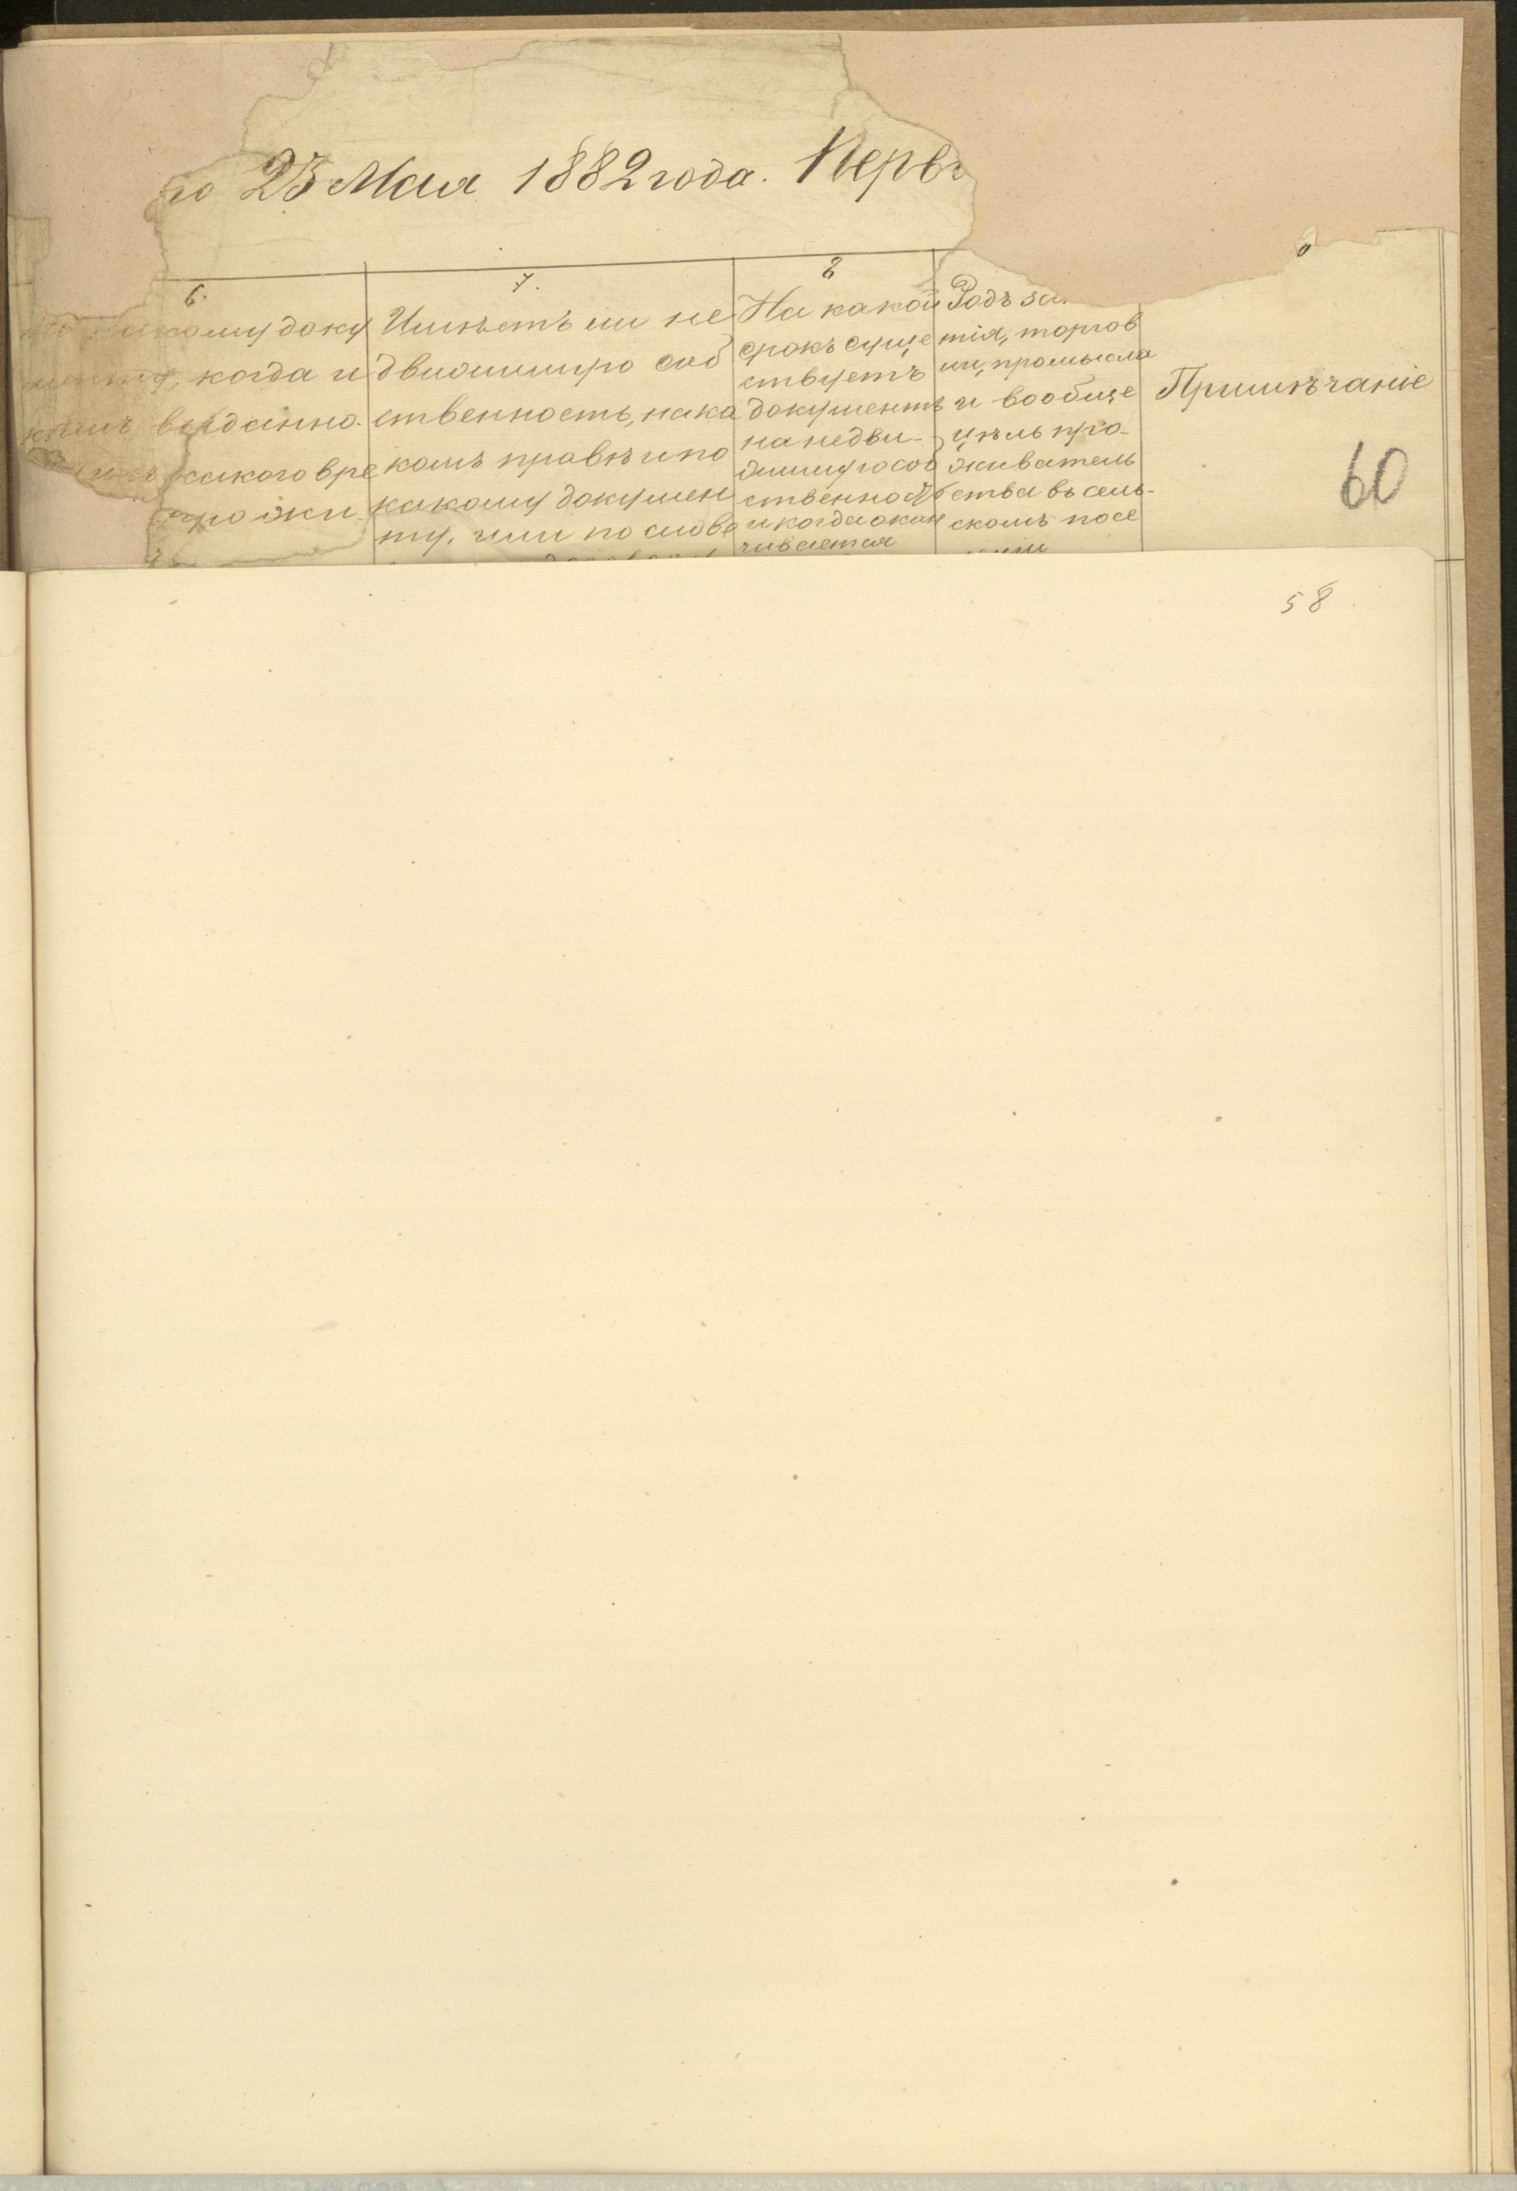 го 23 Мая 1882 года. Первъ
6.
какому доку
менту, когда и
кѣмъ выданно.
и съ какого вре
прожи
7.
Имѣетъ ли не
движимую соб
ственность, на ка
комъ правѣ и по
какому докумен
ту, или по слове
8
На какой
срокъ суще
ствуетъ
документъ
на недви-
жимую соб
ственность
и когда окан
чивается
Родъ за
тія, торгов
ли, промысла
и вообще
цѣль про-
живатель
ства въ сель-
скомъ посе
Примѣчаніе
60
58